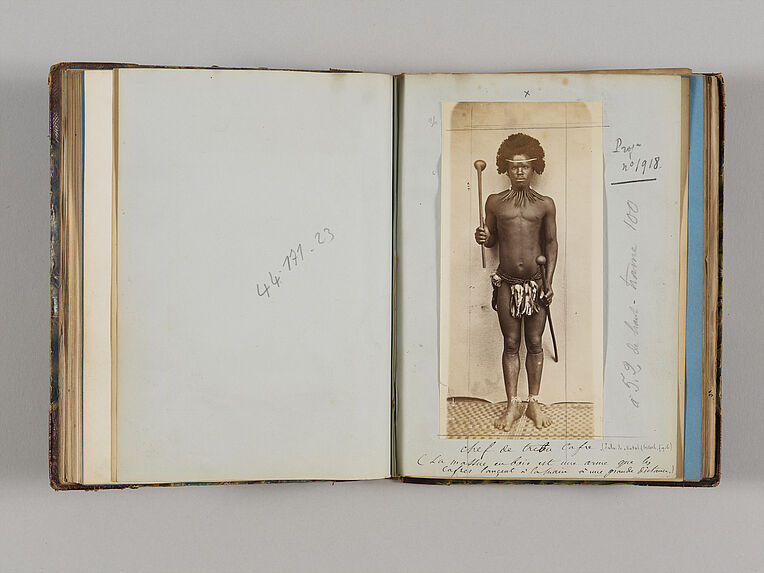 44.171-23
x
Proj-
n° 1918.
à 5,2 de haut - trame 100
chef de tribu Cafre
(La massue en bois est une arme que les
Cafres lancent à la main à une grande distance.)